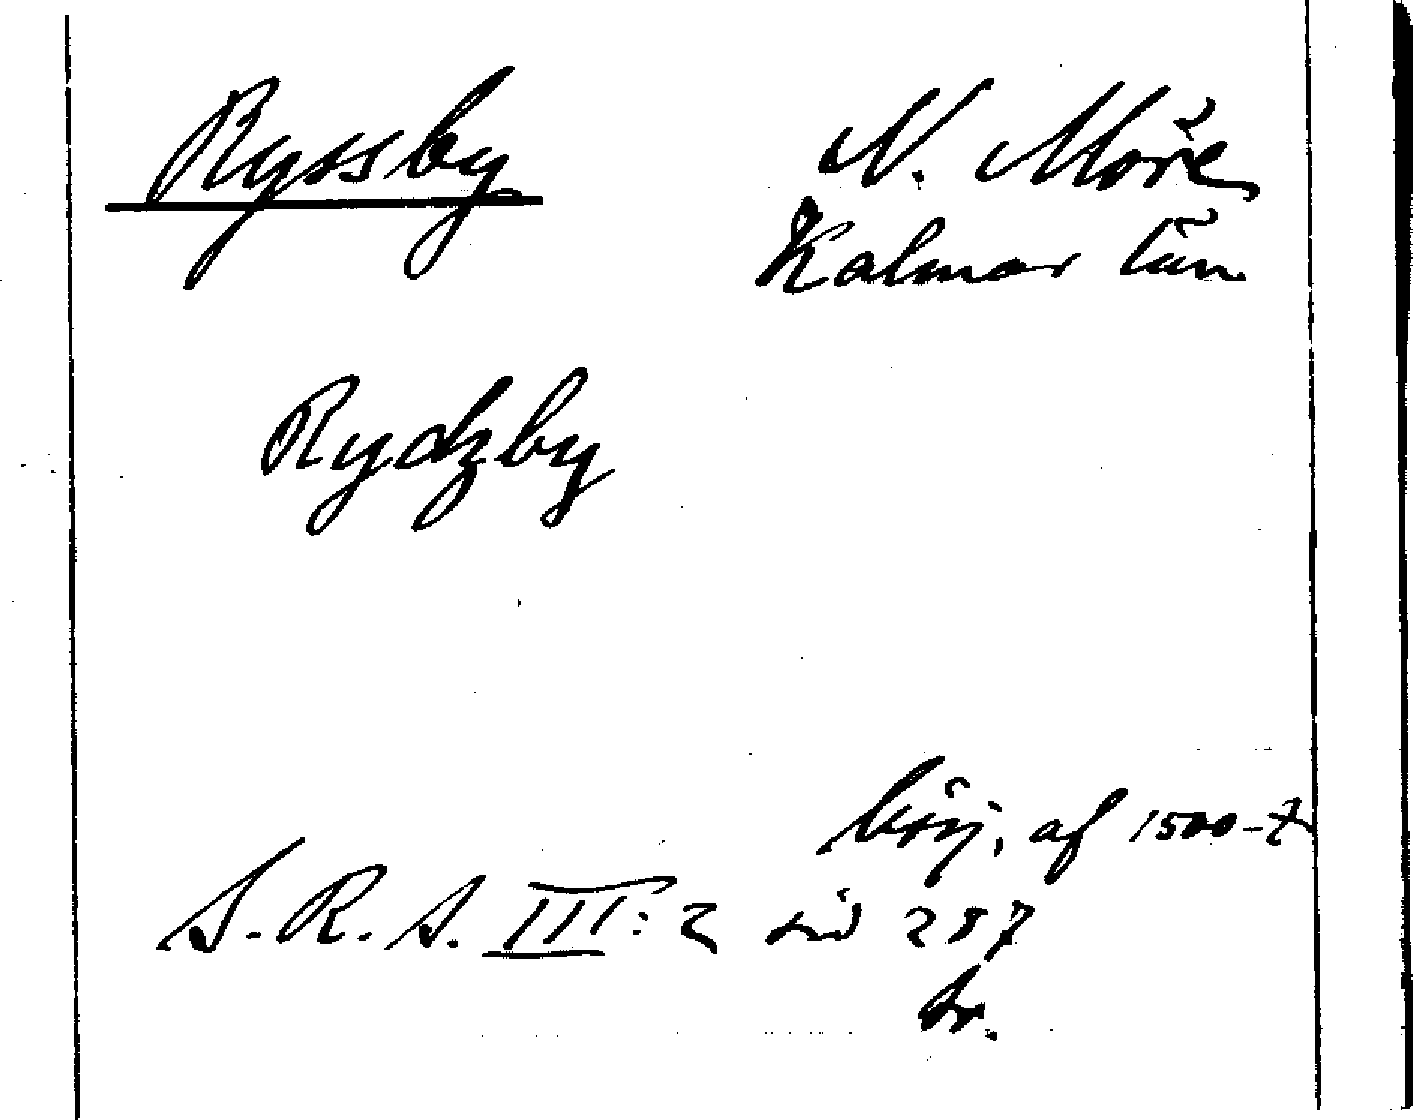 Ryssby N. Möre
Kalmar län
Rydzby
börj. af 1500-t
S.R.S. III:2 sid 257
br.